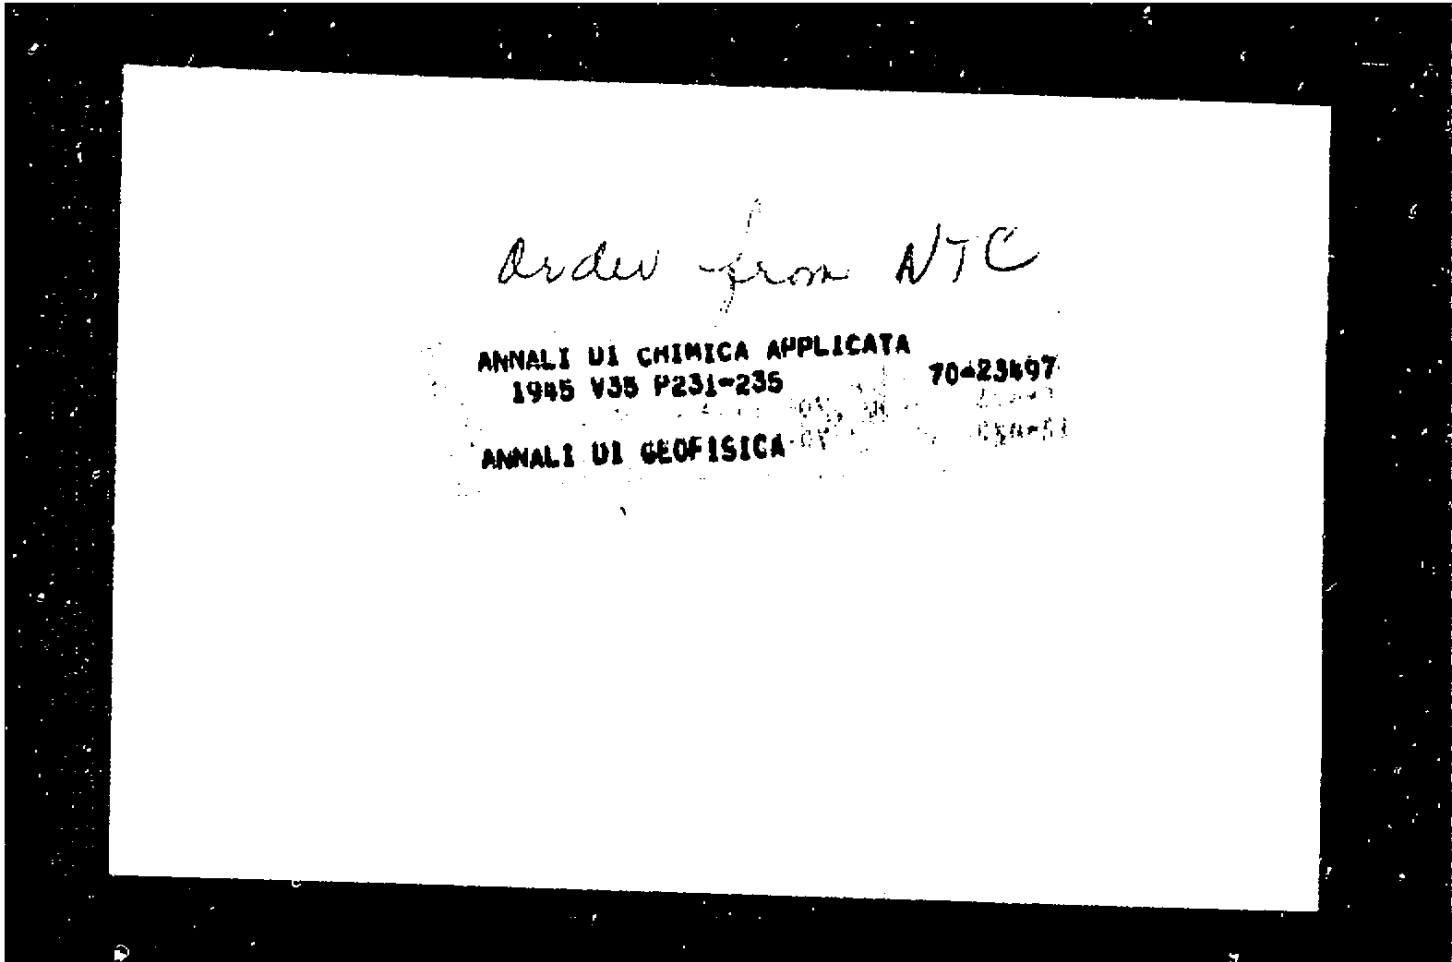 Order from NTC
ANNALI DI CHIMICA APPLICATA
1945 V35 P231-235 70-23497
ANNALI DI GEOFISICA